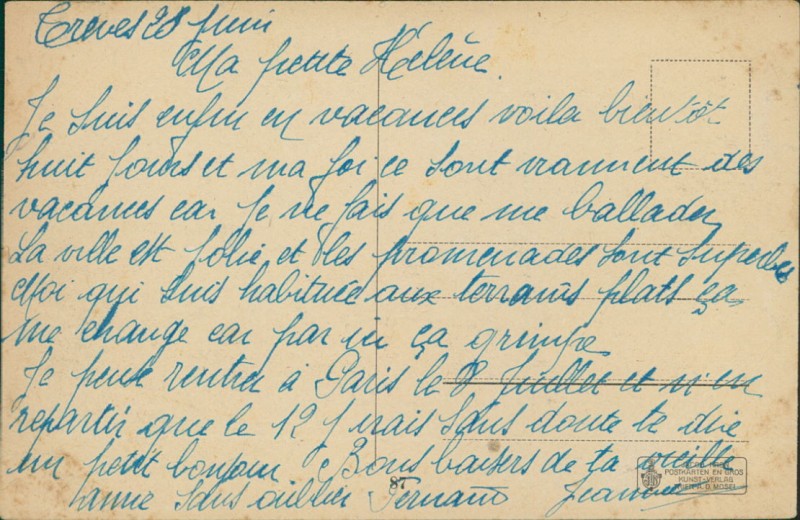 Treves 28 Juin
Ma petite Hélène
Je suis enfin en vacances voila bientôt
huit jours et ma foi ce sont vraiment des
vacances car je ne fais que me ballader
La ville est jolie et les promenades sont superbes
Moi qui suis habituée aux terrains plats ça
me change car par ici ça grimpe
Je pense rentrer à Paris le 8 Juillet et n'en
repartir que le 12 J'irais sans doute te dire
un petit bonjour Bons baisers de ta vieille
amie sans oublier Fernand Jeanne
87
POSTKARTEN EN GROS
KUNST-VERLAG
TRIER A. D. MOSEL